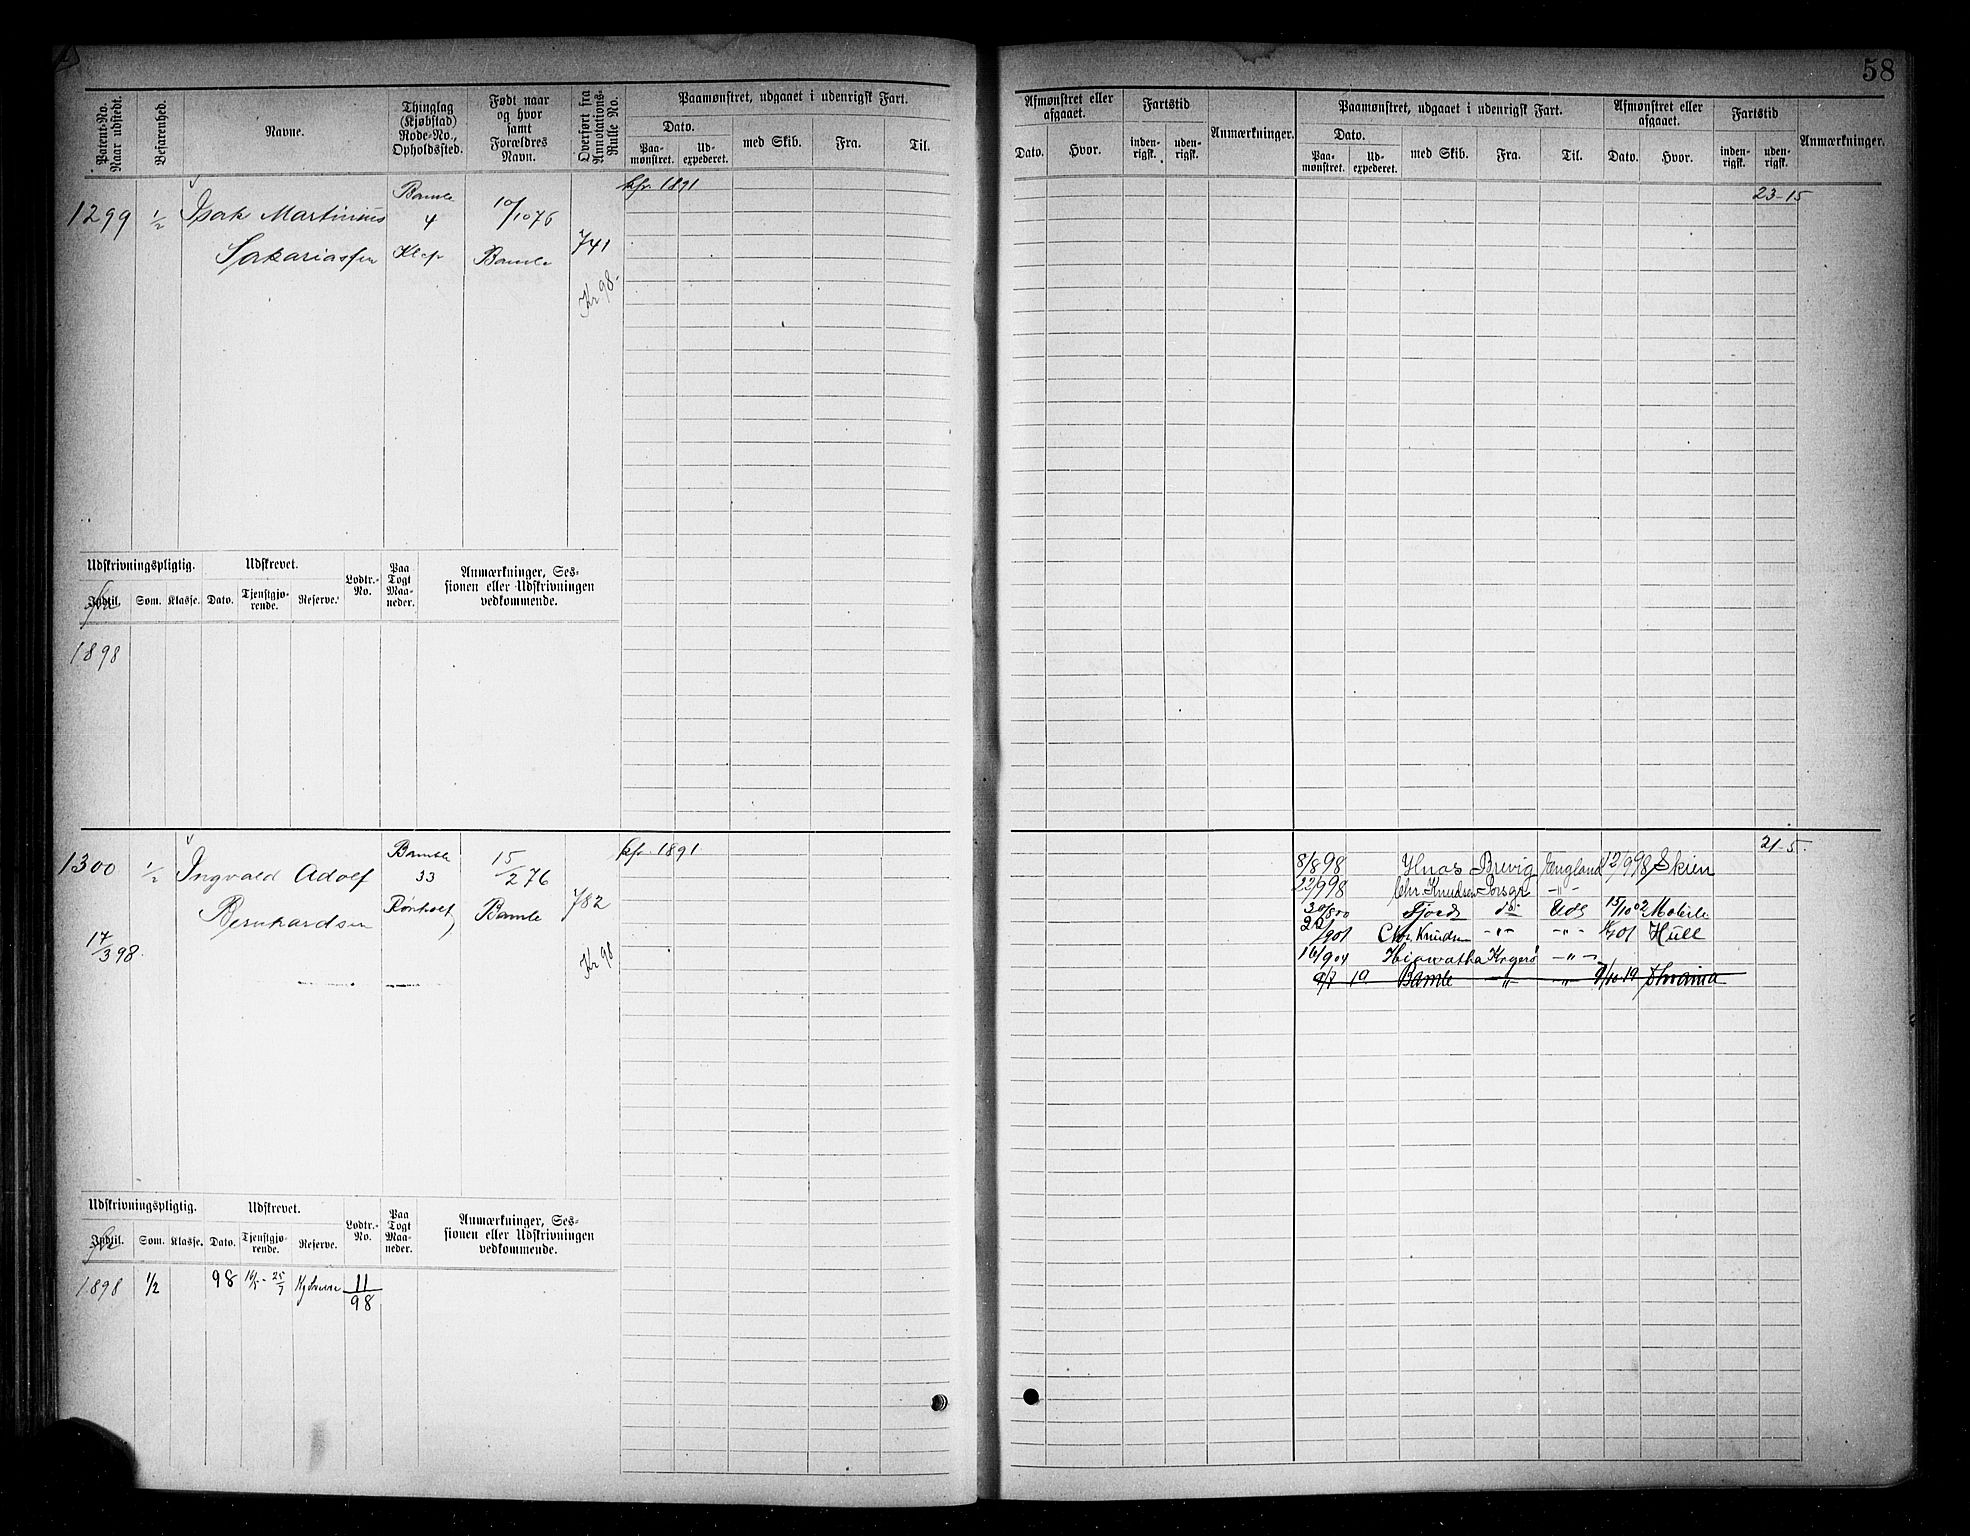 58
Patent-No. Naar udstedt.
Befarenhed.
Navne.
Thinglag (Kjøbstad) Rode-No., Opholdssted.
Født naar og hvor samt Forældres Navn.
Overført fra Annotations-Rulle No.
Paamønstret, udgaaet i udenrigsk Fart.
Dato.
Paa-mønstret.
Ud-expederet.
med Skib.
Fra.
Til.
Afmønstret eller afgaaet.
Dato.
Hvor.
Fartstid
inden-rigsk.
uden-rigsk.
Anmærkninger.
Paamønstret, udgaaet i udenrigsk Fart.
Dato.
Paa-mønstret.
Ud-expederet.
med Skib.
Fra.
Til.
Afmønstret eller afgaaet.
Dato.
Hvor.
Fartstid
inden-rigsk.
uden-rigsk.
Anmærkninger.
1299 1/2 Isak Martinius Sakariassen
Bamle 4 Klep
10/10 76 Bamle
741
Kr 98.
kfr. 1891
23-15
Udskrivningspligtig.
Indtil. Som. Klasse.
Udskrevet.
Dato. Tjenstgjø-rende. Reserve.
Lodtr.-No.
Paa Togt Maa-neder.
Anmærkninger, Ses-sionen eller Udskrivningen vedkommende.
1898
1300 1/2 Ingvald Adolf Bernhardsen
17/3 98.
Bamble 33 Rønholt
15/2 76 Bamle
782
Kr 98
kfr. 1891.
21-5.
8/8 98 Brevig England 12/9 98 Skien
22/9 98 Chr. Knudsen Porsgr -"-
30/8 00 Fjord do Uds 15/10 02 Mobile
22/9 01 Chr. Knudsen -"- -"- Hull
16/9 04 Hiawatha Kragerø -"-
9/7 19 Bamle -"- -"-
Udskrivningspligtig.
Indtil. Som. Klasse.
Udskrevet.
Dato. Tjenstgjø-rende. Reserve.
Lodtr.-No.
Paa Togt Maa-neder.
Anmærkninger, Ses-sionen eller Udskrivningen vedkommende.
1898 1/2 98 25/7 11/98